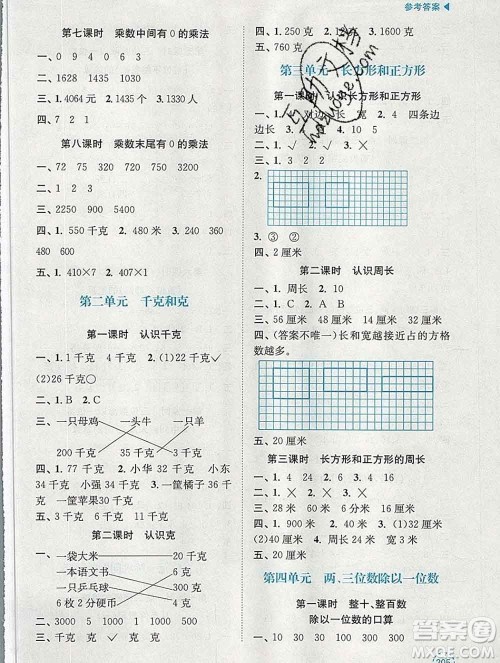 参考答案
第七课时 乘数中间有0的乘法
一、0 9 4 0 6 3 0
二、1628 1435 1030
三、1.4064元 2.1435个 3.1330人
四、7 2 1
第八课时 乘数末尾有0的乘法
一、72 75 320 720 720
二、750 1200 3250
三、2250 5400 900 1400
四、1.550千克 2.480米 3.200千克
480 680
五、1.410×7 2.480 407×1
第二单元 千克和克
第一课时 认识千克
一、1.千克 4千克 2.(1)22千克✓
(2)26千克○
二、1.B 2.C
三、一只母鸡 一头牛 一只羊
200千克 2千克 35千克
四、1.77千克 2.小华 32千克 小东
34千克 小强 36千克 3.一筐橘子
17千克 一筐苹果30千克
五、3千克 6千克 11千克
第二课时 认识克
一、一袋大米 20千克
一本语文书 6克
6枚2分硬币 200克
二、1.✓ 2.✓ 3.✓ 4.✓
三、< > < = > =
四、1.250克 2.900克 3.4千克
五、760克
第三单元 长方形和正方形
第一课时 认识长方形和正方形
边长 边长
二、1.3 2.2
2.
3.③ ②
四、2厘米
第二课时 认识周长
一、1.周长 2.10
二、1.✓ 2.✕ 3.✕ 4.✓
三、56厘米 48厘米 32厘米 28厘米
四、(答案不唯一)长和宽越接近占的方格
数越多。
五、20厘米
第三课时 长方形和正方形的周长
一、1.24 2.30
二、1.✕ 2.✕ 3.✓ 4.✕
三、28厘米 32厘米 64厘米
五、20厘米
第四单元 两、三位数除以一位数
第一课时 整十、整百数
除以一位数的口算
一、30 300 20 200 30 300
作业帮
hdzuoye.com
答案圈
205